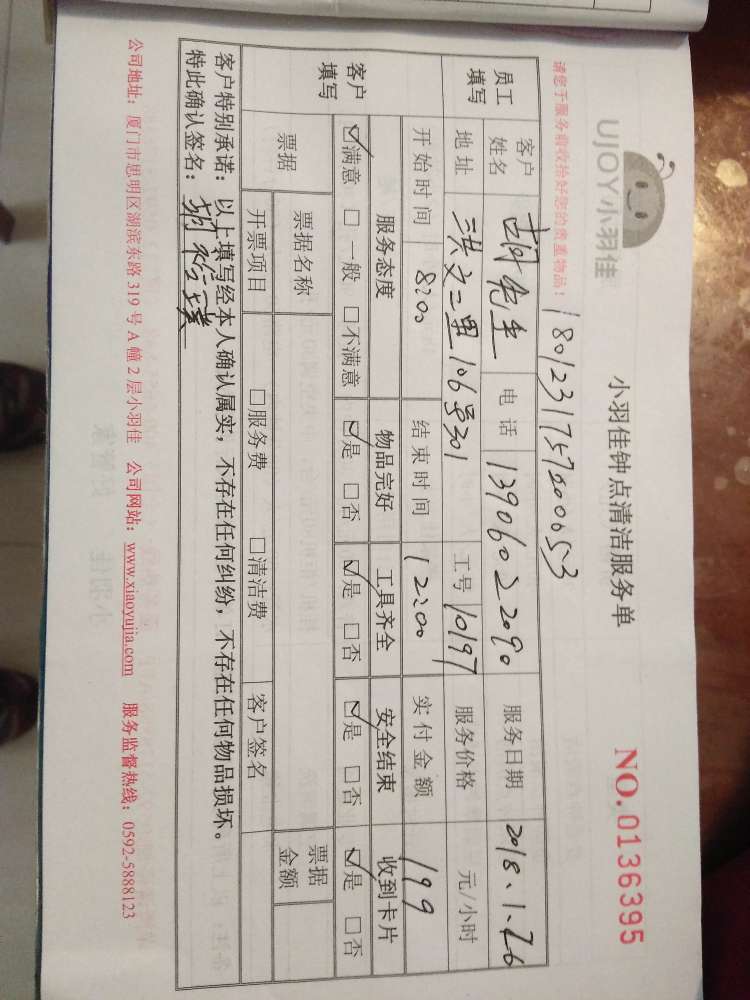 UJOY小羽佳
小羽佳钟点清洁服务单
NO.0136395
请您于服务前收拾好您的贵重物品:
180123175700653
员工填写 客户姓名 胡先生 电话 13906022090 服务日期 2018.1.26
地址 洪文二里106号301 工号 10197 服务价格 元/小时
开始时间 8:00 结束时间 12:00 实付金额 199
客户填写 服务态度 物品完好 工具齐全 安全结束 收到卡片
☑满意 □一般 □不满意 ☑是 □否 ☑是 □否 ☑是 □否 ☑是 □否
票据 票据名称 票据金额
开票项目 □服务费 □清洁费 客户签名
客户特别承诺:以上填写经本人确认属实,不存在任何纠纷,不存在任何物品损坏。
特此确认签名:
公司地址:厦门市思明区湖滨东路319号A幢2层小羽佳 公司网站:www.xiaoyujia.com 服务监督热线:0592-5888123